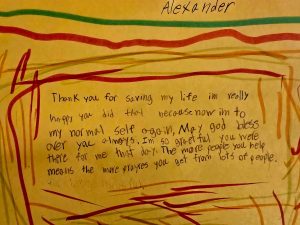 Alexander
Thank you for saving my life im really
happy you did that because now im to
my normal self again, May god bless
over you always. Im so grateful you were
there for me that day. The more people you help
means the more prayres you get from lots of people.